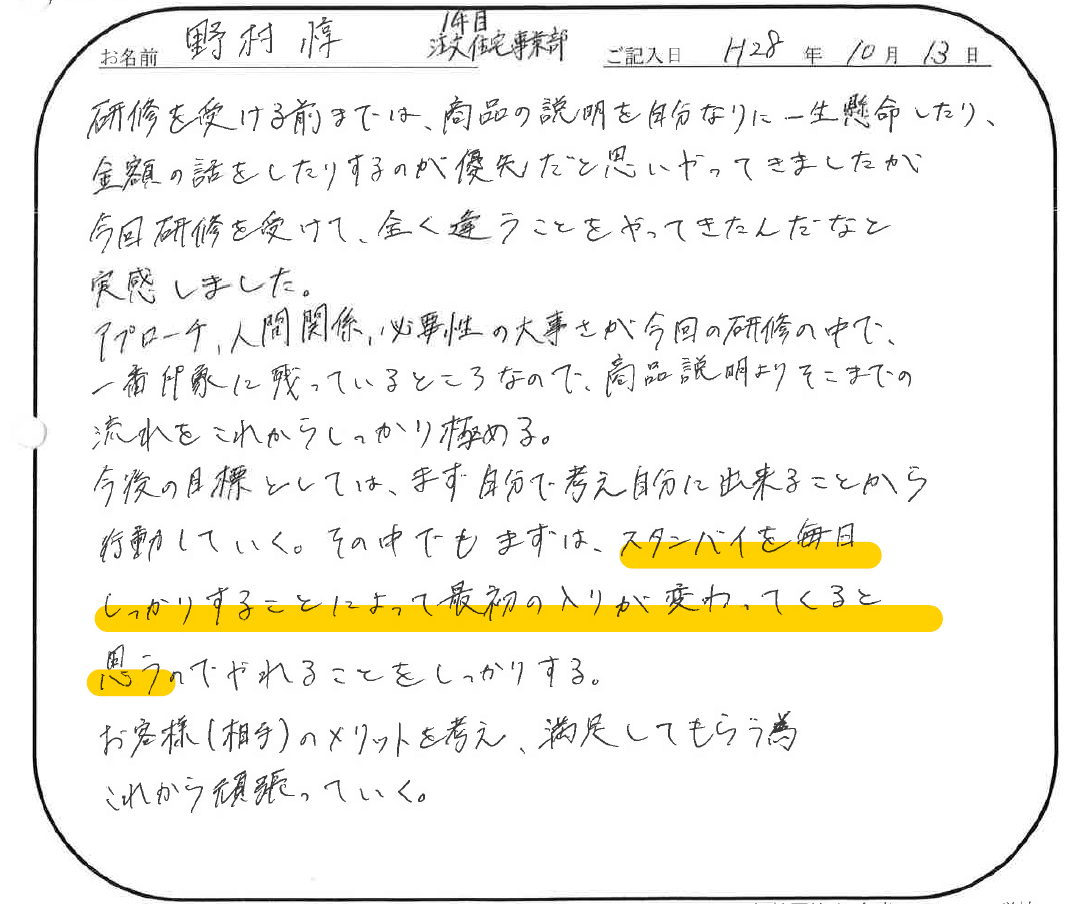 お名前 野村 惇 1年目 注文住宅事業部 ご記入日 H28 年 10 月 13 日
研修を受ける前までは、商品の説明を自分なりに一生懸命したり、
金額の話をしたりするのが優先だと思いやってきましたが
今回研修を受けて、全く違うことをやってきたんだなと
実感しました。
アプローチ、人間関係、必要性の大事さが今回の研修の中で、
一番印象に残っているところなので、商品説明よりそこまでの
流れをこれからしっかり極める。
今後の目標としては、まず自分で考え自分に出来ることから
行動していく。その中でもまずは、スタンバイを毎日
しっかりすることによって最初の入りが変わってくると
思うのでやれることをしっかりする。
お客様(相手)のメリットを考え、満足してもらう為
これから頑張っていく。